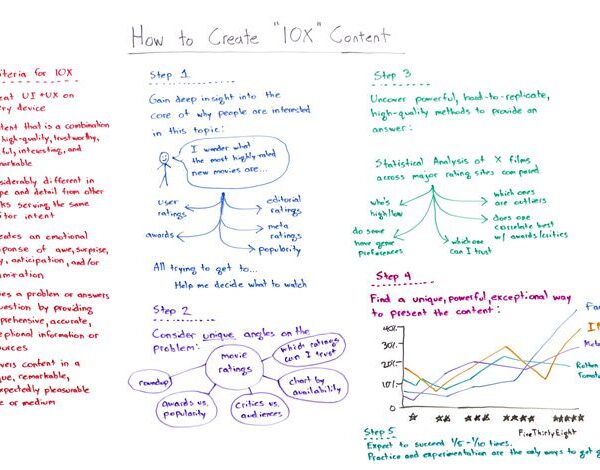 How to Create "10X" Content
iteria for 10X
eat UI + UX on
ry device
tent that is a combination
high-quality, trustworthy,
ful, interesting, and
markable
siderably different in
pe and detail from other
ks serving the same
itor intent
eates an emotional
ponse of awe, surprise,
y, anticipation, and/or
miration
ves a problem or answers
question by providing
prehensive, accurate,
eptional information or
ources
ivers content in a
que, remarkable,
expectedly pleasurable
le or medium
Step 1
Gain deep insight into the
core of why people are interested
in this topic:
I wonder what
the most highly-rated
new movies are...
user
ratings
awards
editorial
ratings
meta
ratings
popularity
All trying to get to...
Help me decide what to watch
Step 2
Consider unique angles on the
problem:
movie
ratings
which ratings
can I trust
roundup
chart by
availability
awards vs.
popularity
critics vs.
audiences
Step 3
Uncover powerful, hard-to-replicate,
high-quality methods to provide an
answer:
Statistical Analysis of X films
across major rating sites compared
who's
high/low
which ones
are outliers
do some
have genre
preferences
does one
correlate best
w/ awards/critics
which one
can I trust
Step 4
Find a unique, powerful, exceptional way
to present the content:
Fan
Meta
Rotten
Tomato
40%
30%
20%
10%
FiveThirtyEight
Step 5
Expect to succeed 1/5 - 1/10 times.
Practice and experimentation are the only ways to get g